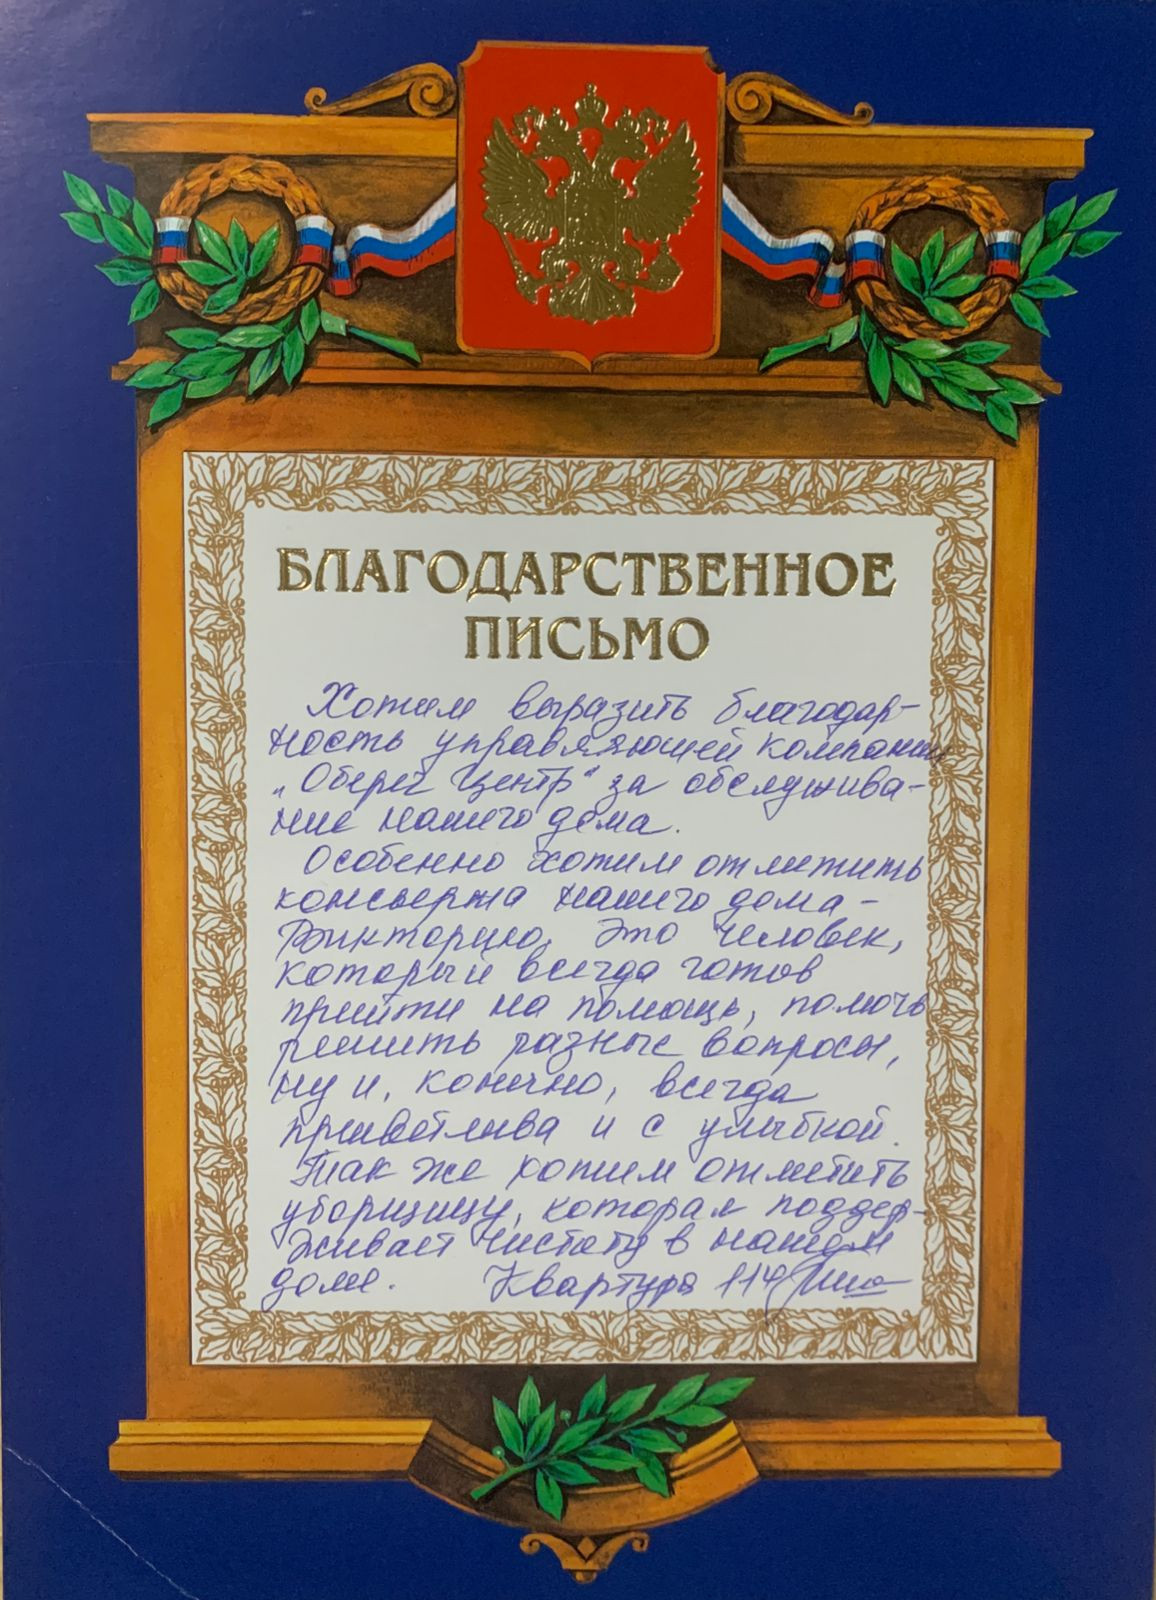 БЛАГОДАРСТВЕННОЕ
ПИСЬМО
Хотим выразить благодар-
ность управляющей компании
„Оберег Центр“ за обслужива-
ние нашего дома.
Особенно хотим отметить
консьержа нашего дома -
Викторию. Это человек,
который всегда готов
прийти на помощь, помочь
решить разные вопросы,
ну и, конечно, всегда
приветлива и с улыбкой.
Так же хотим отметить
уборщицу, которая поддер-
живает чистоту в нашем
доме. Квартира 114